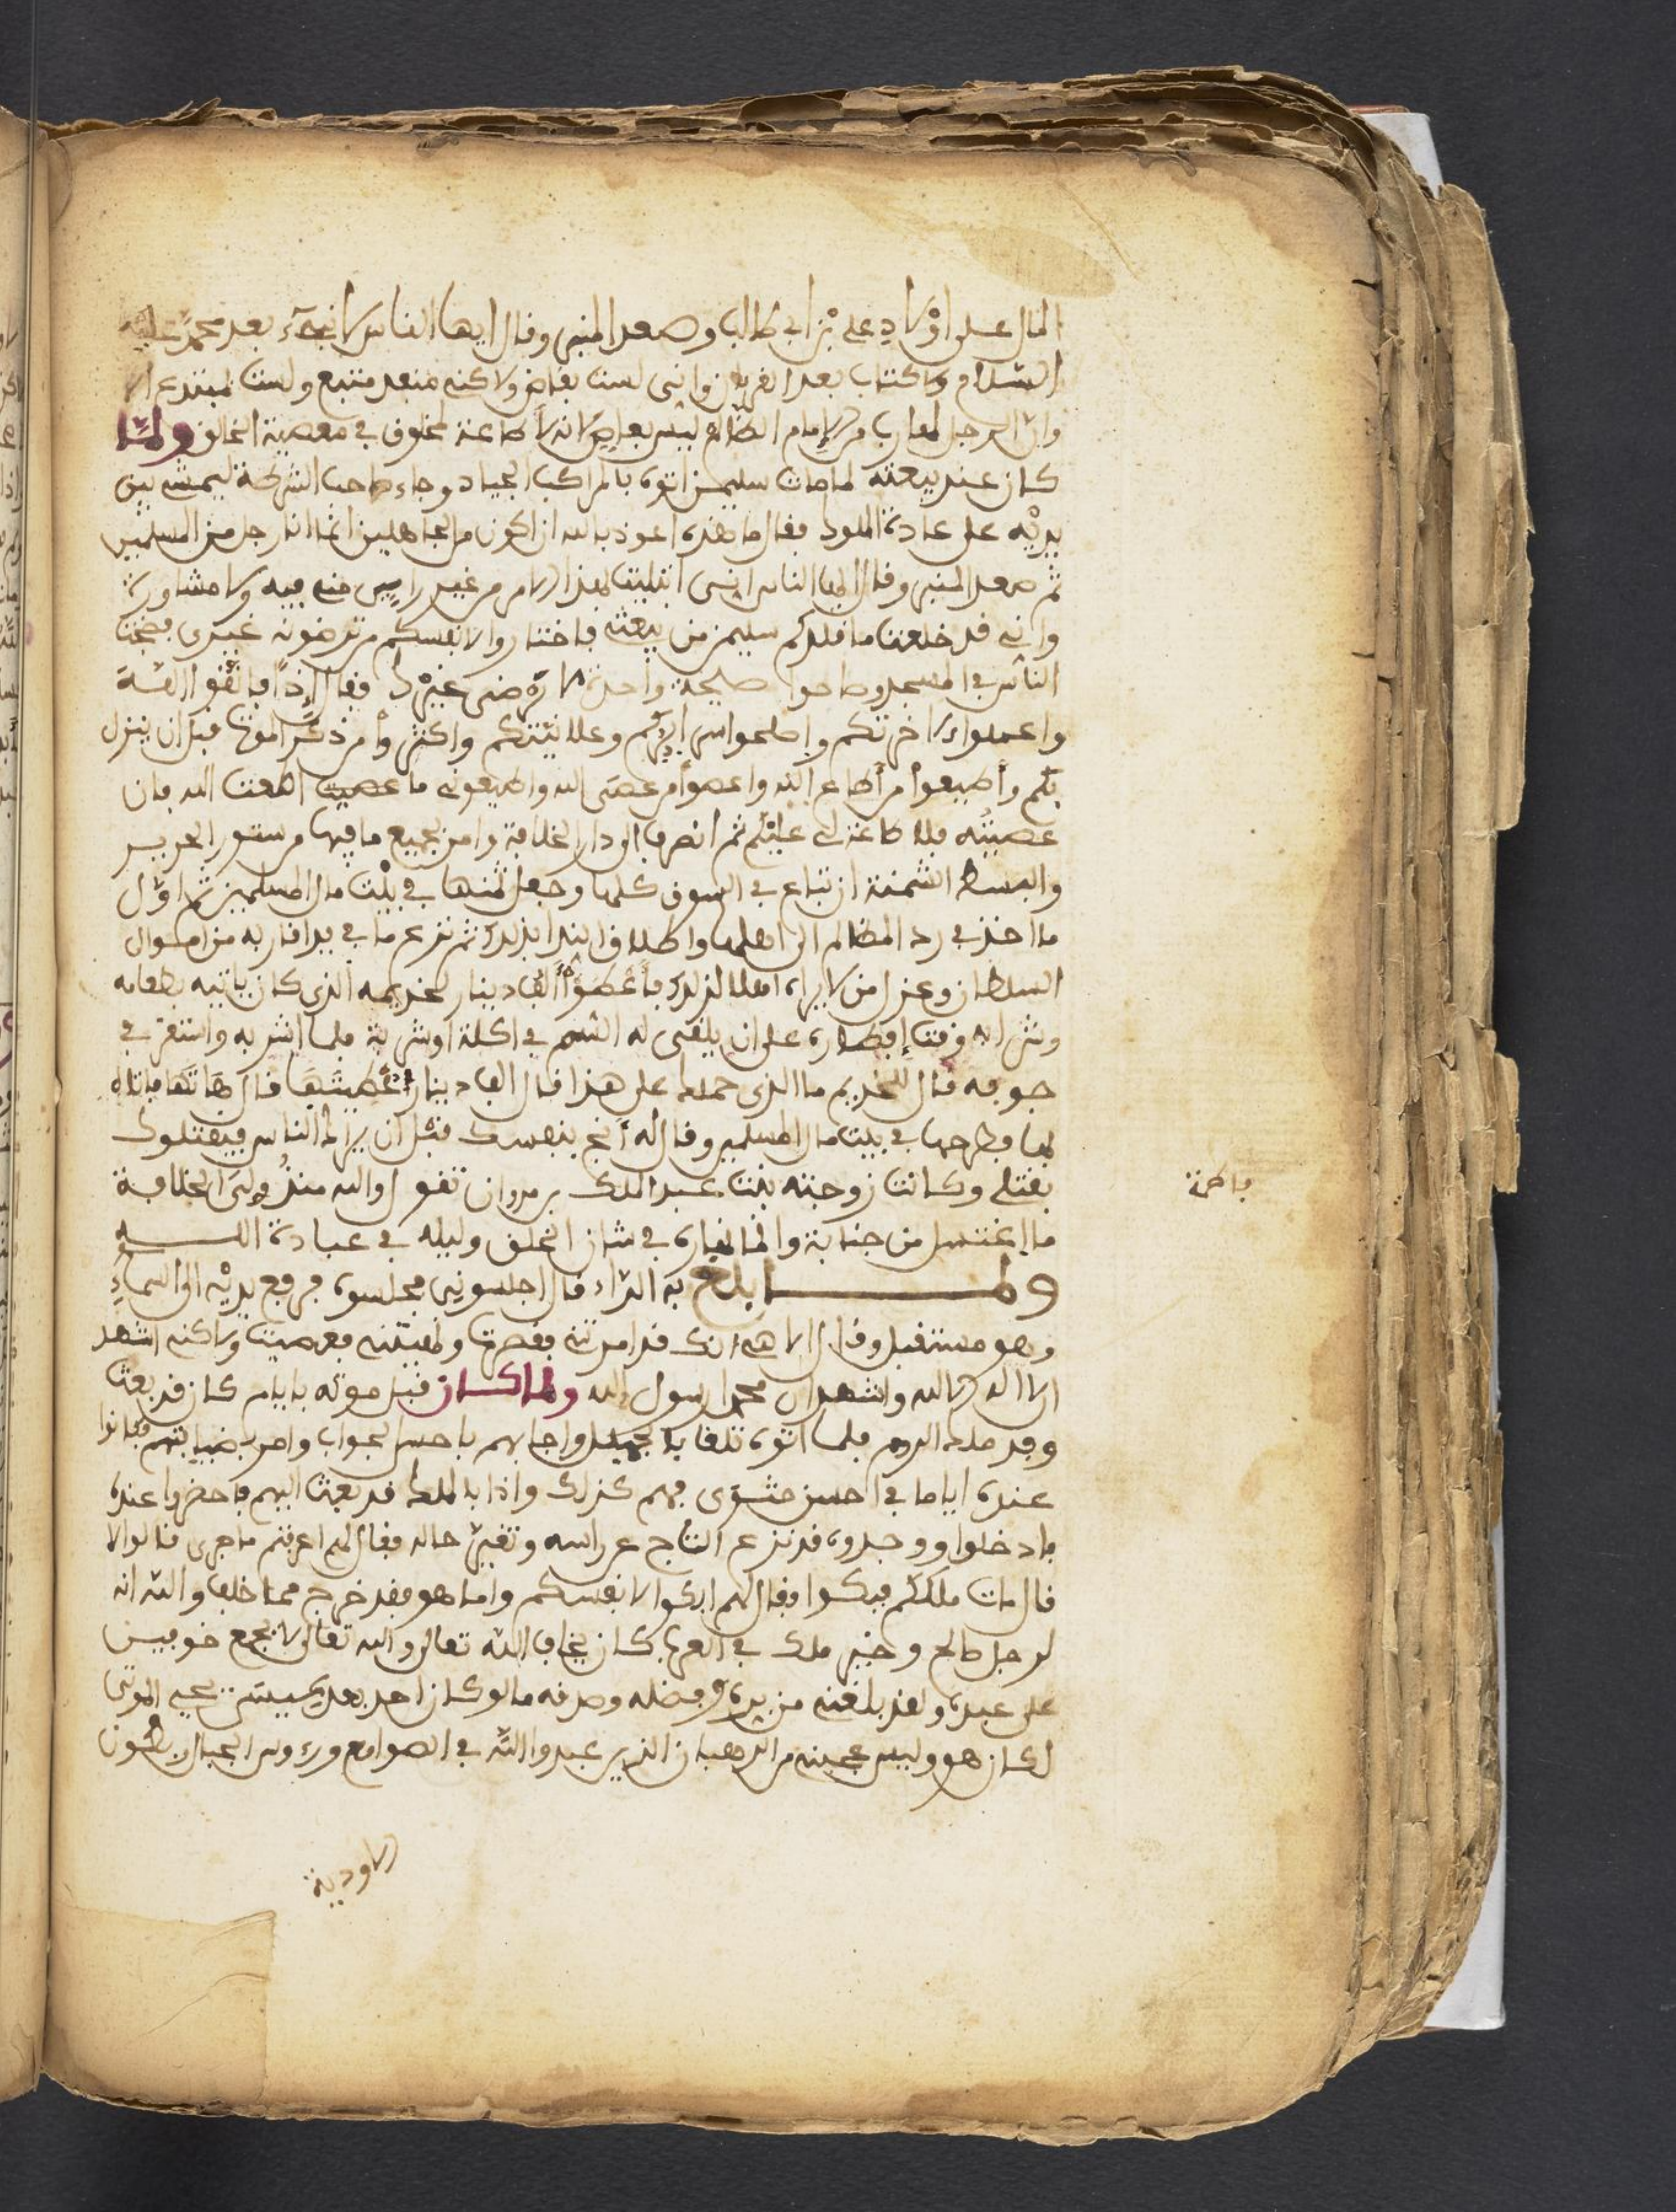 المال على اولاد علي بن ابي طالب وصعد المنبر وقال ايها الناس لا نبيء بعد محمد عليه
السلام ولا كتاب بعد القرءان واني لست بقاض ولاكني منفد متبع ولست بمبتدع الا
وان الرجل الهارب من الامام الظالم ليس بعاص لانه لا طاعة لمخلوق في معصية الخالق ولما
كان عند بيعته لما مات سليمن اتوه بالمراكب الجياد وجاء صاحب الشرطة ليمشي بين
يديه على عادة الملوك فقال ما هذه اعوذ بالله ان اكون من الجاهلين انما انا رجل من المسلمين
ثم صعد المنبر وقال ايها الناس انني ابتليت بهذا الامر من غير راي مني فيه ولا مشاورة
واني قد خلعت ما قلدكم سليمن من بيعته فاختاروا لانفسكم من ترضونه غيري فضجت
الناس في المسجد وصاحوا صيحة واحدة لا نرضى غيرك فقال إذا فاتقوا الله
واعملوا لاخرتكم واصلحوا سرايركم وعلانيتكم واكثروا من ذكر الموت قبل ان ينزل
بكم وأطيعوا من أطاع الله واعصوا من عصى الله واطيعوني ما اطعت الله فان
عصيته فلا طاعة لي عليكم ثم انصرف الى دار الخلافة وامر بجميع ما فيها من ستور الحرير
والبسط الثمنة ان تباع في السوق كلها وجعل ثمنها في بيت مال المسلمين ثم اول
ما اخذ في رد المظالم الى اهلها واطلاق ثم نزع ما في يد اقاربه من اموال
السلطان وعزل من لا يراه اهلا لذلك فأعطوا ألف دينار لخديمه الذي كان ياتيه بطعامه
وشرابه وقت إفطاره على ان يلقى له السم في اكلة او شربة فلما شربه واستقر في
جوفه قال للخديم ما الذي حملك على هذا قال الف دينار أعطيتها قال هاتها فاتاه
بها فطرحها في بيت مال المسلمين وقال له أنج بنفسك قبل أن يراك الناس فيقتلوك
بقتلي وكانت زوجته بنت عبد الملك بن مروان تقول والله منذ ولي الخلافة
فاطمة
ما اغتسل من جنابة وانما نهاره في شان الخلق وليله في عبادة الله
ولما بلغ به الداء قال اجلسوني فجلسوه فرفع يديه الى السماء
وهو مستقبل وقال الاهي انك قد امرتني فقصرت ونهيتني فعصيت ولاكني اشهد
ان لا اله الا الله واشهد ان محمدا رسول الله ولما كان قبل موته بايام كان قد بعث
وفد ملك الروم فلما اتوه تلقاهم بالجميل واجابهم باحسن الجواب وامر بضيافتهم فكانوا
عنده اياما في احسن مثوى فهم كذلك واذا بالملك قد بعث اليهم فاحضروا عنده
فادخلوا ووجدوه قد نزع التاج عن راسه وتغير حاله فقال لهم اعرفتم ما جرى قالوا لا
قال مات ملككم فبكوا فقال لهم ابكوا لانفسكم واما هو فقد خرج مما خاف والله انه
لرجل صالح وخير ملك في العرب كان يخاف الله تعالى والله تعالى لا يجمع خوفين
على عبده ولقد بلغني من بره وفضله وصدقه ما لو كان احد بعد عيسى يحيي الموتى
لكان هو وليس عجبت من الرهبان الذين عبدوا الله في الصوامع ورءوس الجبال وبطون
الاودية